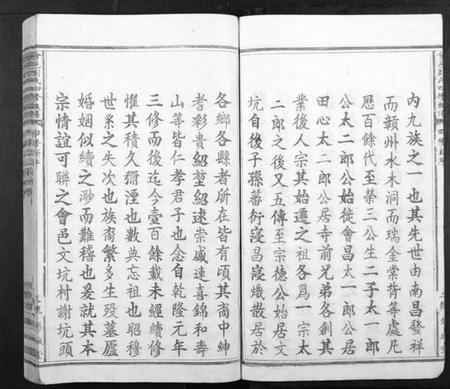 內九族之一也其先世由南昌發祥
而贛州水木洞而瑞金棠背等處凡
厯百餘代至榮三公生二子太一郎
公太二郎公始徙會昌太一郎公居
田心太二郎公居寺前兄弟各創其
業後人宗其始遷之祖各爲一宗太
二郎之後又五傳至宗德公始居文
坑自後子孫蕃衍寖昌寖熾散居於
各鄉各縣者所在皆有頃其裔中紳
耆彰貴紹堃紹遠崇盛連喜錦和壽
山等皆仁孝君子也念自乾隆元年
三修而後迄今壹百餘載未經續修
惟其積久彌湮也數典忘祖也昭穆
世系之失次也族裔繁多生歿墓廬
婚姻似續之渺而難稽也爰就其本
宗情誼可聯之會邑文坑村謝坑頭